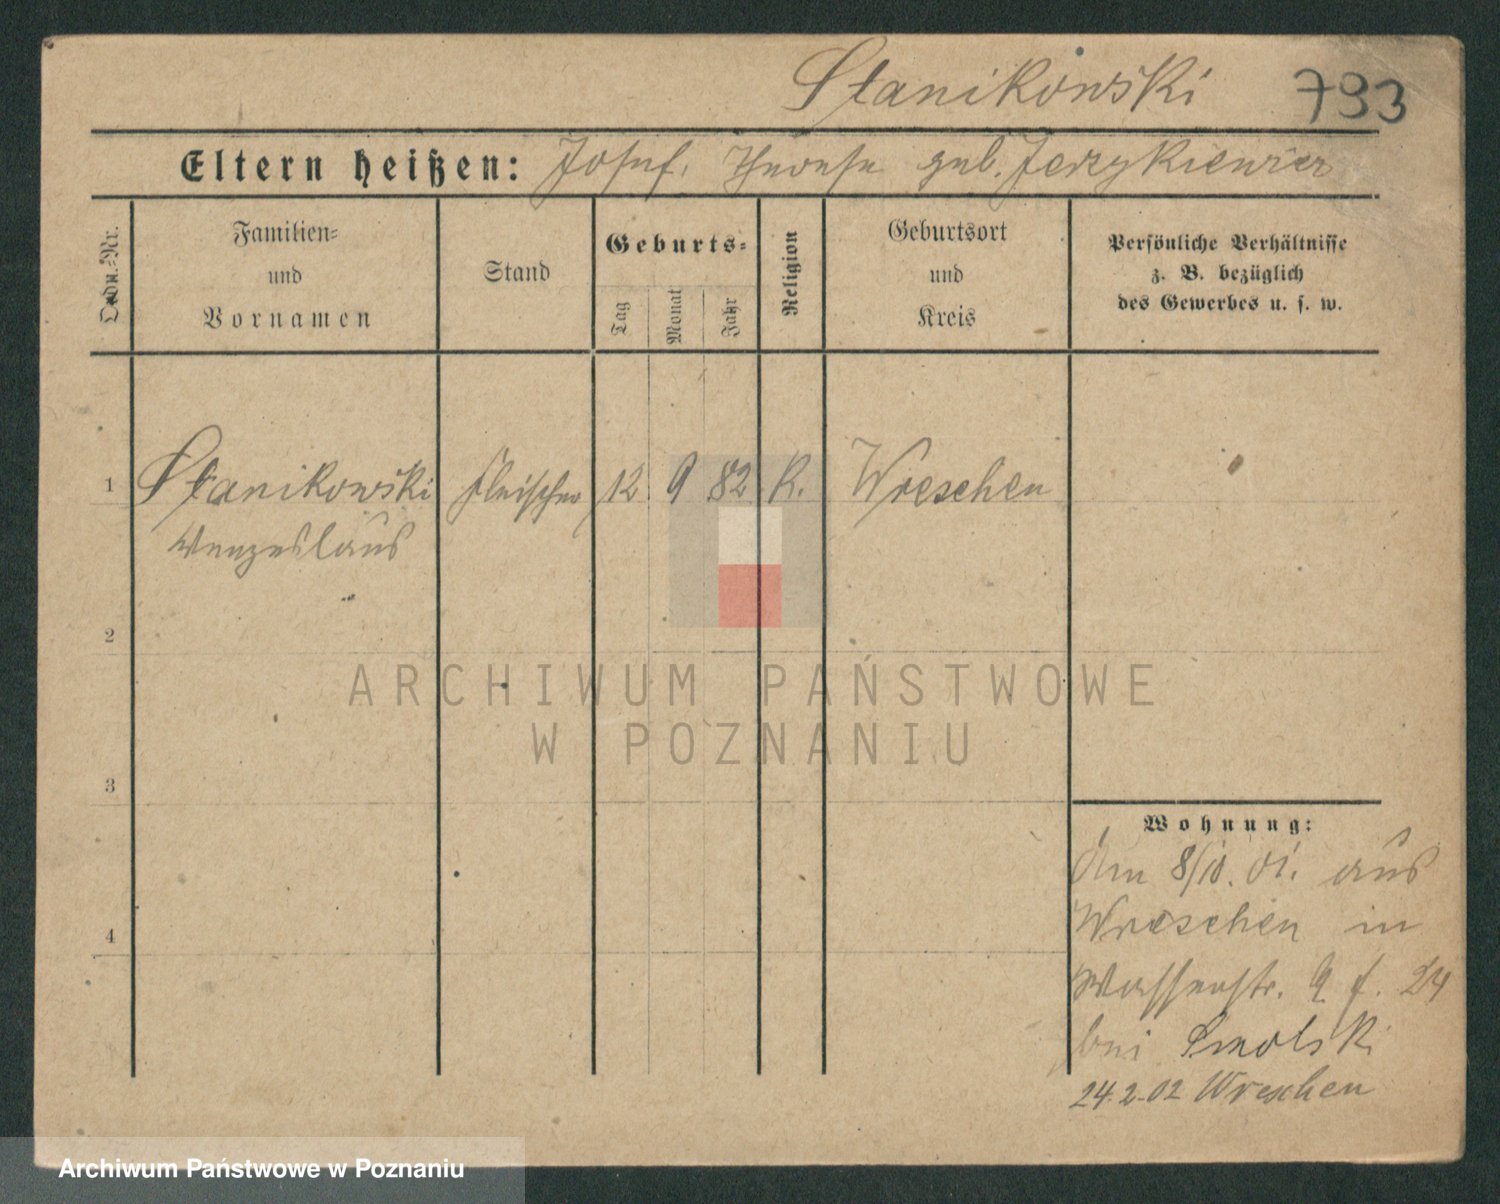 Stanikowski
793
Eltern heißen: Josef, Therese geb. Jerzykiewicz
Ordn.-Nr.
Familien-
und
Vornamen
Stand
Geburts-
Tag
Monat
Jahr
Religion
Geburtsort
und
Kreis
Persönliche Verhältnisse
z. B. bezüglich
des Gewerbes u. s. w.
1 Stanikowski Fleischer 12 9 82 K. Wreschen
Wenzeslaus
2
3
4
Wohnung:
Am 8/10. 01. aus
Wreschen in
Wasserstr. 24
bei Smolski
24.2-02 Wreschen
ARCHIWUM PAŃSTWOWE
W POZNANIU
Archiwum Państwowe w Poznaniu